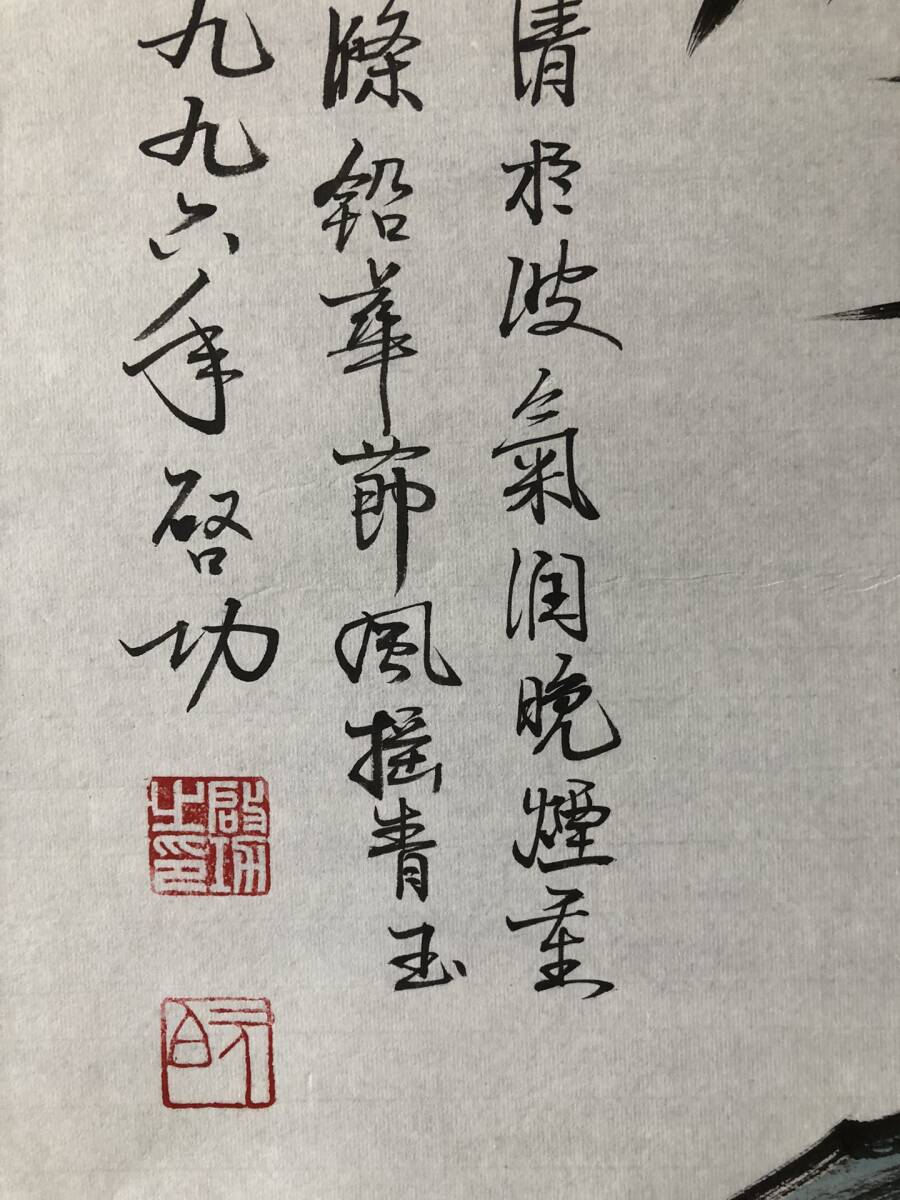 清於波氣润晚煙重
滌鉛華節風搖青玉
九九六年啓功
啟功之印
元白